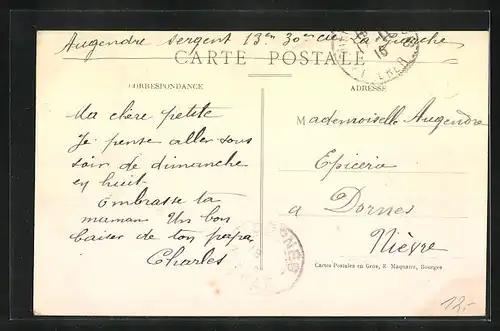 Augendre sergent 13en 30en cie
CARTE POSTALE
CORRESPONDANCE
Ma chère petite
Je pense aller vous
voir de dimanche
en huit
Embrasse ta
maman Un bon
baiser de ton papa
Charles
ADRESSE
Mademoiselle Augendre
Epicerie
a Dornes
Nièvre
Cartes Postales en Gros, Bourges
12.-